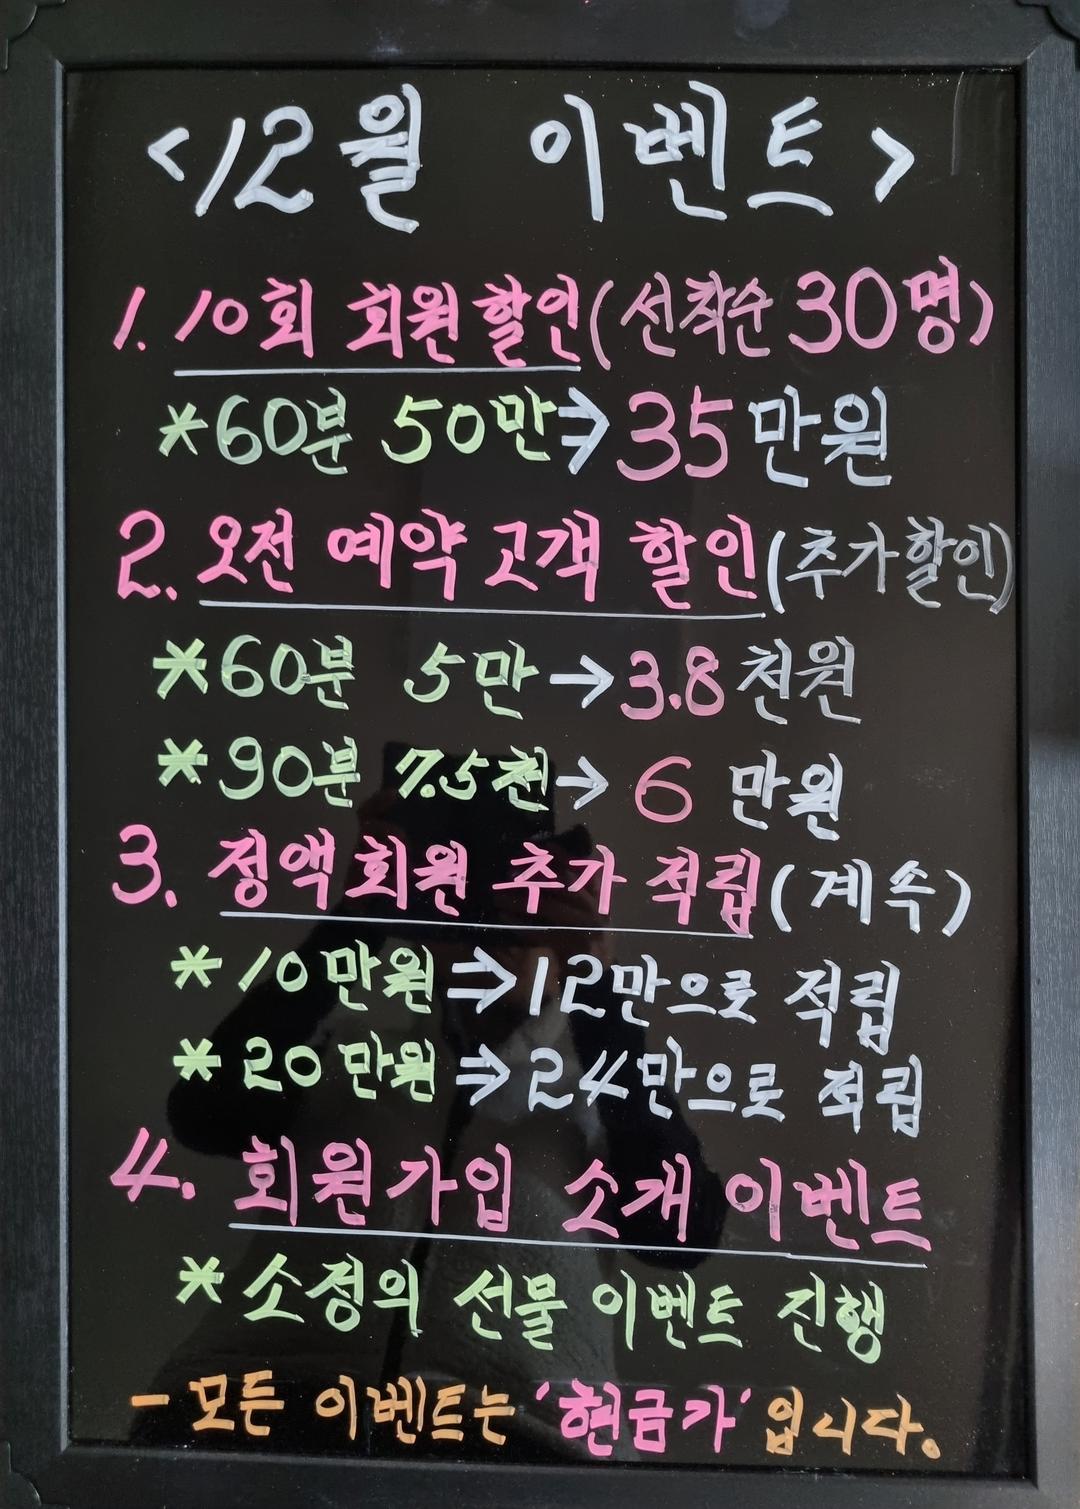 <12월 이벤트>
1. 10회 회원할인(선착순 30명)
*60분 50만⇒35만원
2. 오전 예약 고객 할인(추가할인)
*60분 5만→3.8천원
*90분 7.5천→6만원
3. 정액회원 추가 적립(계속)
*10만원⇒12만으로 적립
*20만원⇒24만으로 적립
4. 회원가입 소개 이벤트
*소정의 선물 이벤트 진행
-모든 이벤트는 '현금가' 입니다.